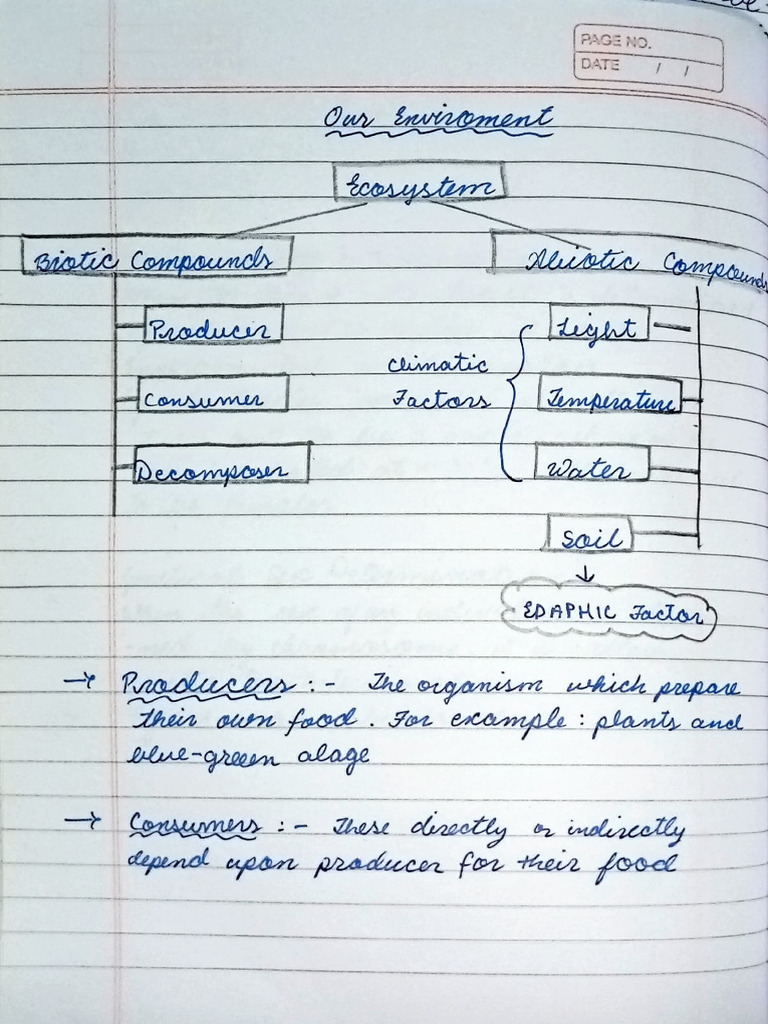 PAGE NO.
DATE / /
Our Enviroment
Ecosystem
Biotic Compounds
Abiotic Compounds
Producer
Light
Climatic
Factors
Consumer
Temperature
Decomposer
Water
Soil
↓
EDAPHIC Factor
→ Producers :- The organism which prepare
their own food. For example : plants and
blue-green alage
→ Consumers :- These directly or indirectly
depend upon producer for their food